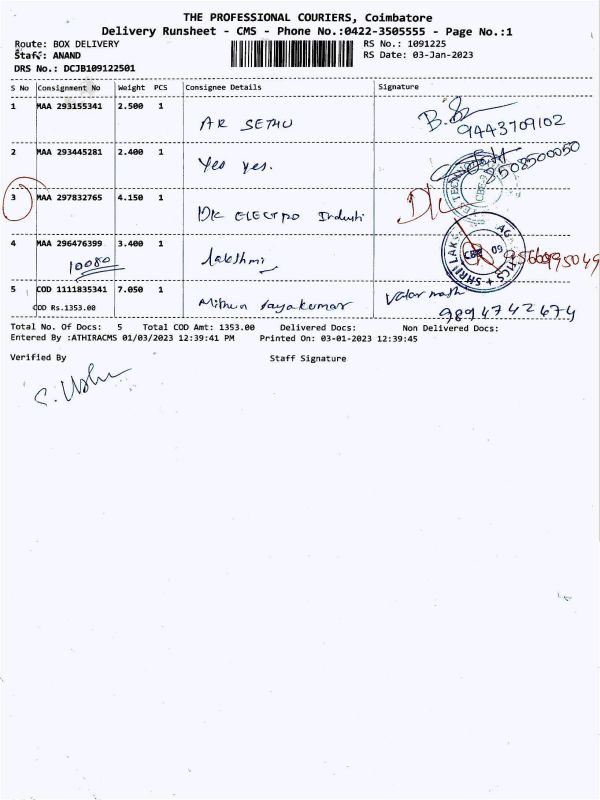 THE PROFESSIONAL COURIERS, Coimbatore
Delivery Runsheet - CMS - Phone No.:0422-3505555 - Page No.:1
Route: BOX DELIVERY
RS No.: 1091225
Staff: ANAND
RS Date: 03-Jan-2023
DRS No.: DCJB109122501
S No Consignment No Weight PCS Consignee Details Signature
1 MAA 293155341 2.500 1 AR SETHU
9443709102
2 MAA 293445281 2.400 1 Yes yes.
8508500050
3 MAA 297832765 4.150 1 DK ELECTRO Industri
4 MAA 296476399 3.400 1 Lakshmi
10080
5 COD 1111835341 7.050 1 Mithun Jayakumar
COD Rs.1353.00
9894742674
Total No. Of Docs: 5 Total COD Amt: 1353.00 Delivered Docs: Non Delivered Docs:
Entered By :ATHIRACMS 01/03/2023 12:39:41 PM Printed On: 03-01-2023 12:39:45
Verified By Staff Signature